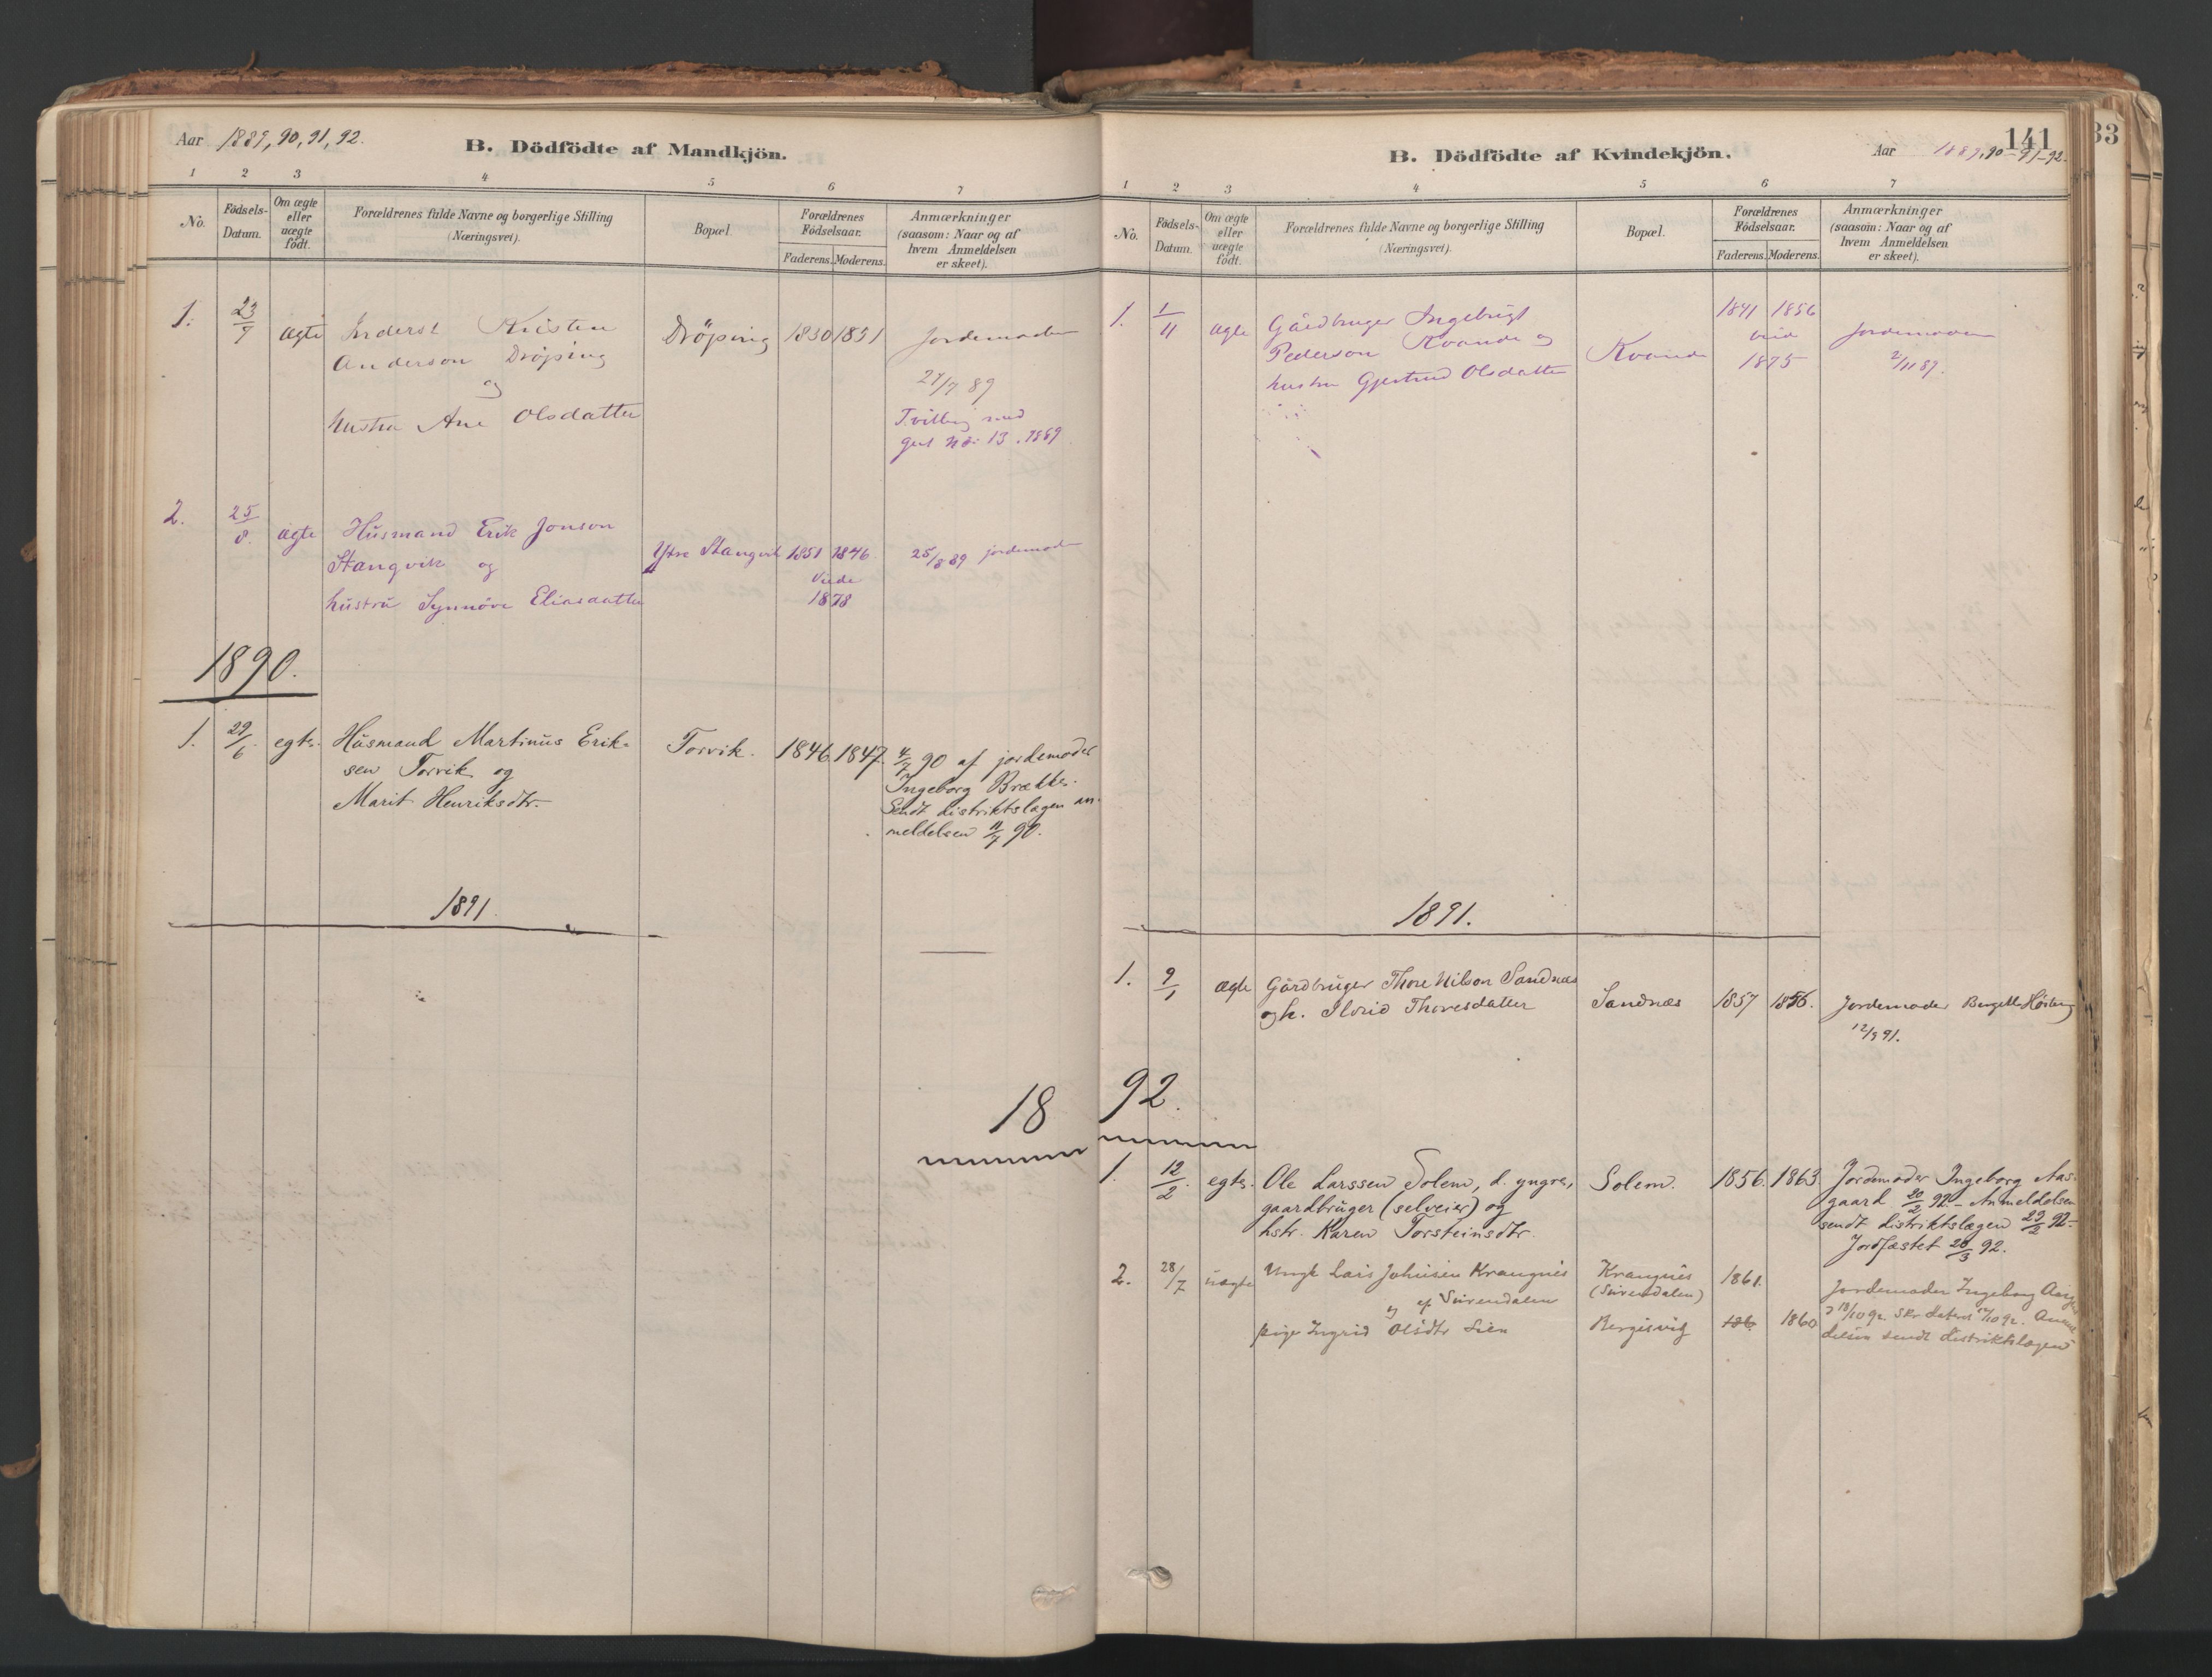 Aar 1889, 90, 91, 92.
B. Dödfödte af Mandkjön.
1 2 3 4 5 6 7
No.
Födsels-
Datum.
Om ægte
eller
uægte
födt.
Forældrenes fulde Navne og borgerlige Stilling
(Næringsvei).
Bopæl.
Forældrenes
Födselsaar.
Faderens. Moderens.
Anmærkninger
(saasom: Naar og af
hvem Anmeldelsen
er skeet).
1. 23/7 ægte Inderst Kristen
Anderson Dröping
og
hustru Ane Olsdatter
Dröping 1830 1851
Jordemoder
27/7 89
Tvilling med
gut No 13. 1889
2. 25/8. ægte Husmand Erik Jonson
Stangvik og
hustru Synnöve Eliasdatter
Ytre Stangvik 1851 1846
viede
1878
25/8 89 jordemoder
1890.
1. 29/6. egte. Husmand Martinus Erik-
sen Torvik og
Marit Henriksdtr.
Torvik. 1846. 1847.
4/7 90 af jordemoder
Ingeborg Brække.
Sendt distriktslægen an-
meldelsen 11/7 90.
1891.
18
141
33
B. Dödfödte af Kvindekjön.
Aar 1889, 90-91-92.
1 2 3 4 5 6 7
No.
Födsels-
Datum.
Om ægte
eller
uægte
födt.
Forældrenes fulde Navne og borgerlige Stilling
(Næringsvei).
Bopæl.
Forældrenes
Födselsaar.
Faderens. Moderens.
Anmærkninger
(saasom: Naar og af
hvem Anmeldelsen
er skeet).
1. 1/11 ægte Gårdbruger Ingebrigt
Pederson Kvande og
hustru Gjertrud Olsdatter
Kvande
1841 1856
viede
1875
Jordemoder
2/11 89.
1891.
1. 9/1 ægte Gårdbruger Thore Nilson Sandnæs
og h. Thoresdatter
Sandnæs 1857 1856.
Jordemoder
91.
92.
1. 12/2. egte. Ole Larssen Solem, d. yngre,
gaardbruger (selveier) og
hstr. Karen Torsteinsdtr.
Solem. 1856. 1863.
Jordemoder Ingeborg Aas-
gaard 20/2 92. - Anmeldelsen
sendt distriktslægen 29/2 92.-
Jordfæstet 20/3 92.
2. 28/7 uægte Ungk Lars Johnsen Krangnes
af Surendalen
og
pige Ingrid Olsdtr Lien
Krangnes
(Surendalen)
1861.
1860
Jordemoder Ingeborg
18/10 92.
sendt distriktslægen